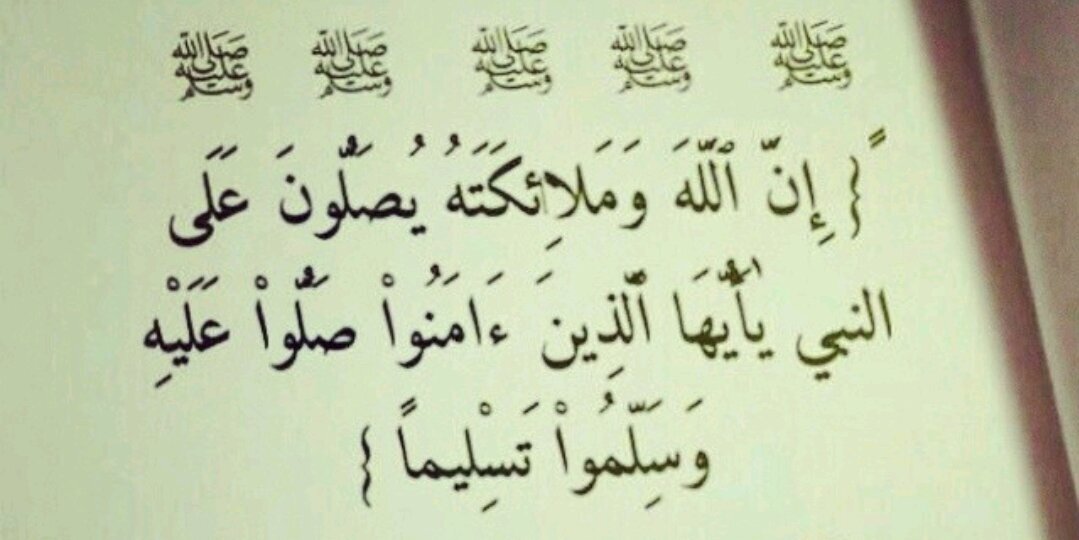 ﷺ ﷺ ﷺ ﷺ ﷺ
{ إِنَّ ٱللَّهَ وَمَلاَئِكَتَهُ يُصَلُّونَ عَلَى
النبي يٰأَيُّهَا ٱلَّذِينَ ءَامَنُواْ صَلُّواْ عَلَيْهِ
وَسَلِّمُواْ تَسْلِيماً }